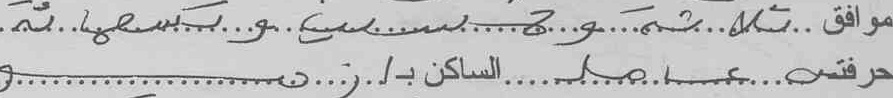 موافق ثلاثة و خمسين و تسعمائة
حرفته عامل الساكن بـ